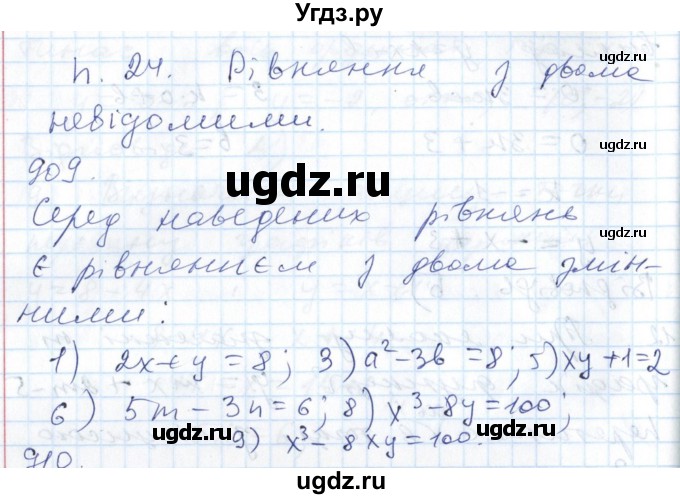 Угдз.ру
п. 24. Рівняння з двома
невідомими.
909.
Серед наведених рівнянь
є рівняннєм з двома змін-
ними:
1) 2x+y=8; 3) a²-3b=8; 5) xy+1=2
6) 5m-3n=6; 8) x³-8y=100;
9) x³-8xy=100.
910.
ugdz.ru
ugdz.ru
ugdz.ru
ugdz.ru
ugdz.ru
ugdz.ru
ugdz.ru
ugdz.ru
ugdz.ru